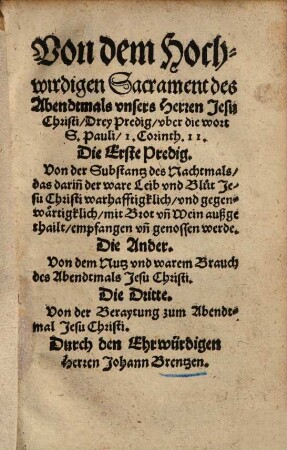 Von dem Hoch-
wirdigen Sacrament des
Abendtmals vnsers Herren Jesu
Christi/ Drey Predig/ vber die wort
S. Pauli/ 1. Corinth. 11.
Die Erste Predig.
Von der Substantz des Nachtmals/
das dariñ der ware Leib vnd Blůt Je-
su Christi warhafftigklich/ vnd gegen-
wärtigklich/ mit Brot vñ Wein außge
theilt/ empfangen vñ genossen werde.
Die Ander.
Von dem Nutz vnd warem Brauch
des Abendtmals Jesu Christi.
Die Dritte.
Von der Beraytung zum Abendt-
mal Jesu Christi.
Durch den Ehrwürdigen
Herren Johann Brentzen.